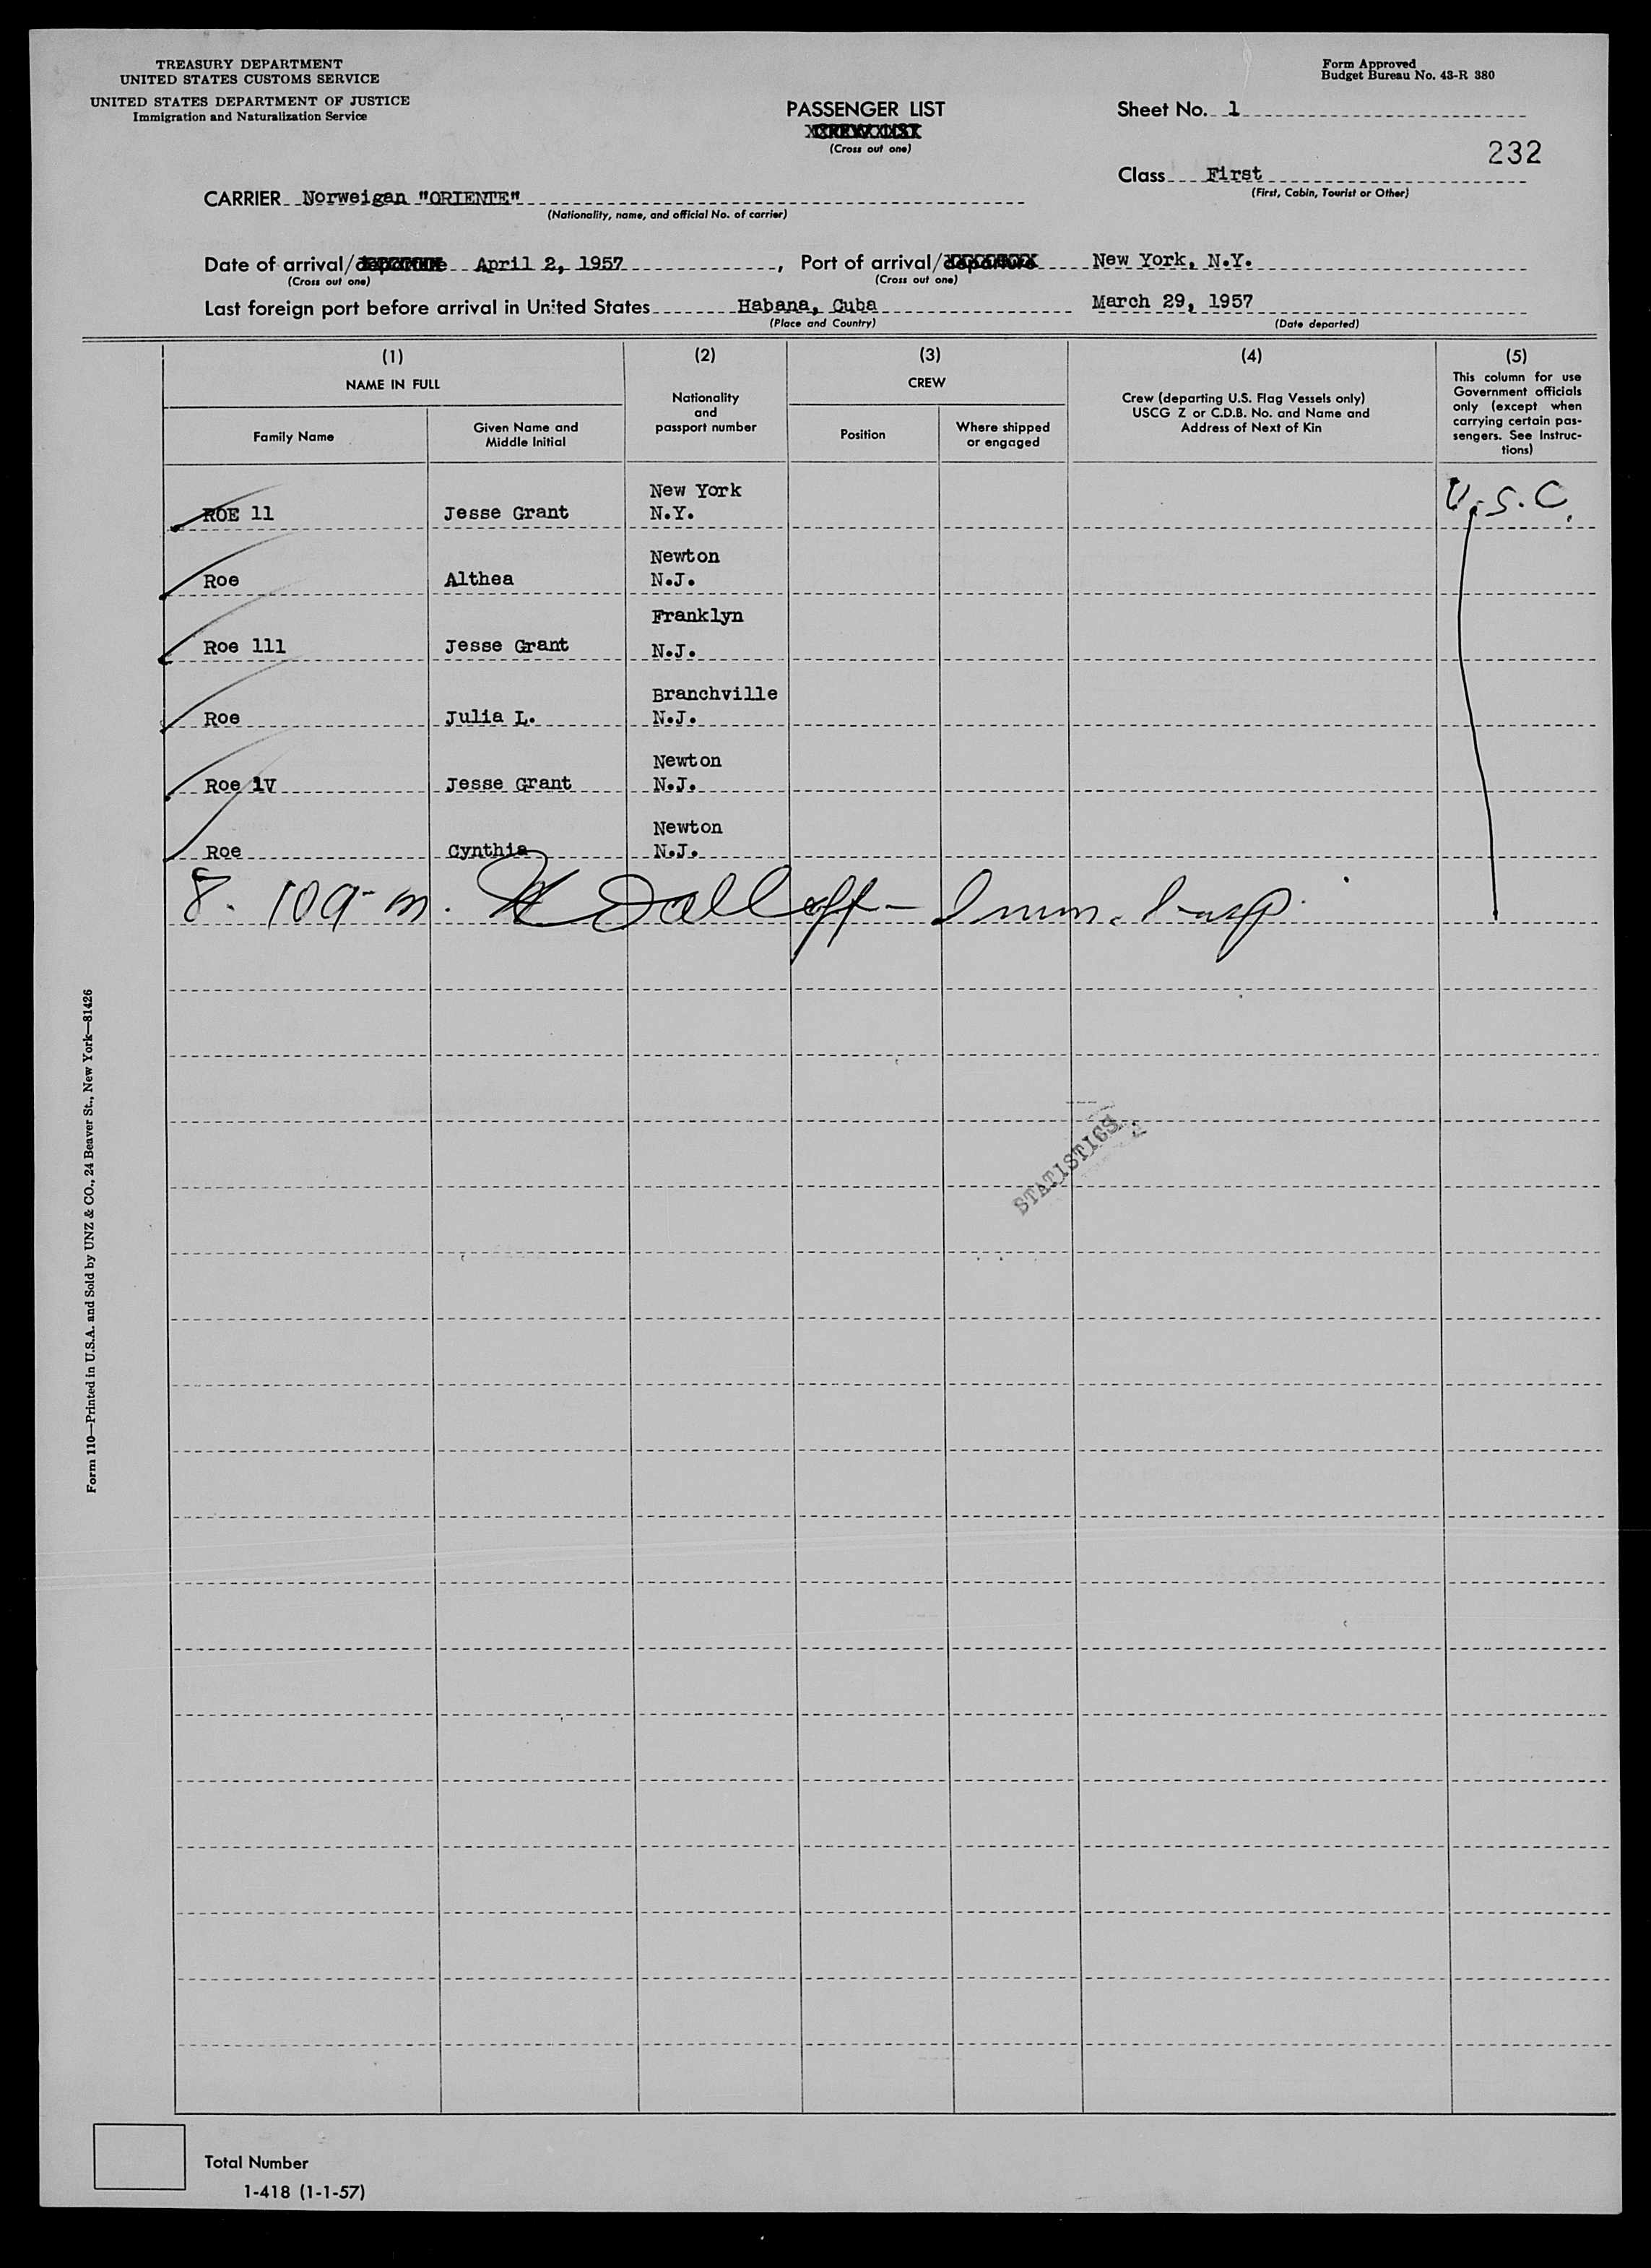 TREASURY DEPARTMENT
UNITED STATES CUSTOMS SERVICE
UNITED STATES DEPARTMENT OF JUSTICE
Immigration and Naturalization Service
Form Approved
Budget Bureau No. 43-R 380
PASSENGER LIST
CREW LIST
(Cross out one)
Sheet No. 1
232
Class First
(First, Cabin, Tourist or Other)
CARRIER Norweigan "ORIENTE"
(Nationality, name, and official No. of carrier)
Date of arrival/departure April 2, 1957, Port of arrival/departure New York, N.Y.
(Cross out one) (Cross out one)
Last foreign port before arrival in United States Habana, Cuba March 29, 1957
(Place and Country) (Date departed)
(1) (2) (3) (4) (5)
NAME IN FULL
Family Name
Given Name and
Middle Initial
Nationality
and
passport number
CREW
Position
Where shipped
or engaged
Crew (departing U.S. Flag Vessels only)
USCG Z or C.D.B. No. and Name and
Address of Next of Kin
This column for use
Government officials
only (except when
carrying certain pas-
sengers. See Instruc-
tions)
New York
ROE 11 Jesse Grant N.Y. U.S.C.
Newton
Roe Althea N.J.
Franklyn
Roe 111 Jesse Grant N.J.
Branchville
Roe Julia L. N.J.
Newton
Roe iV Jesse Grant N.J.
Newton
Roe Cynthia N.J.
8. Imm. Insp.
STATISTICS
Form 110—Printed in U.S.A. and Sold by UNZ & CO., 24 Beaver St., New York—81426
Total Number
1-418 (1-1-57)